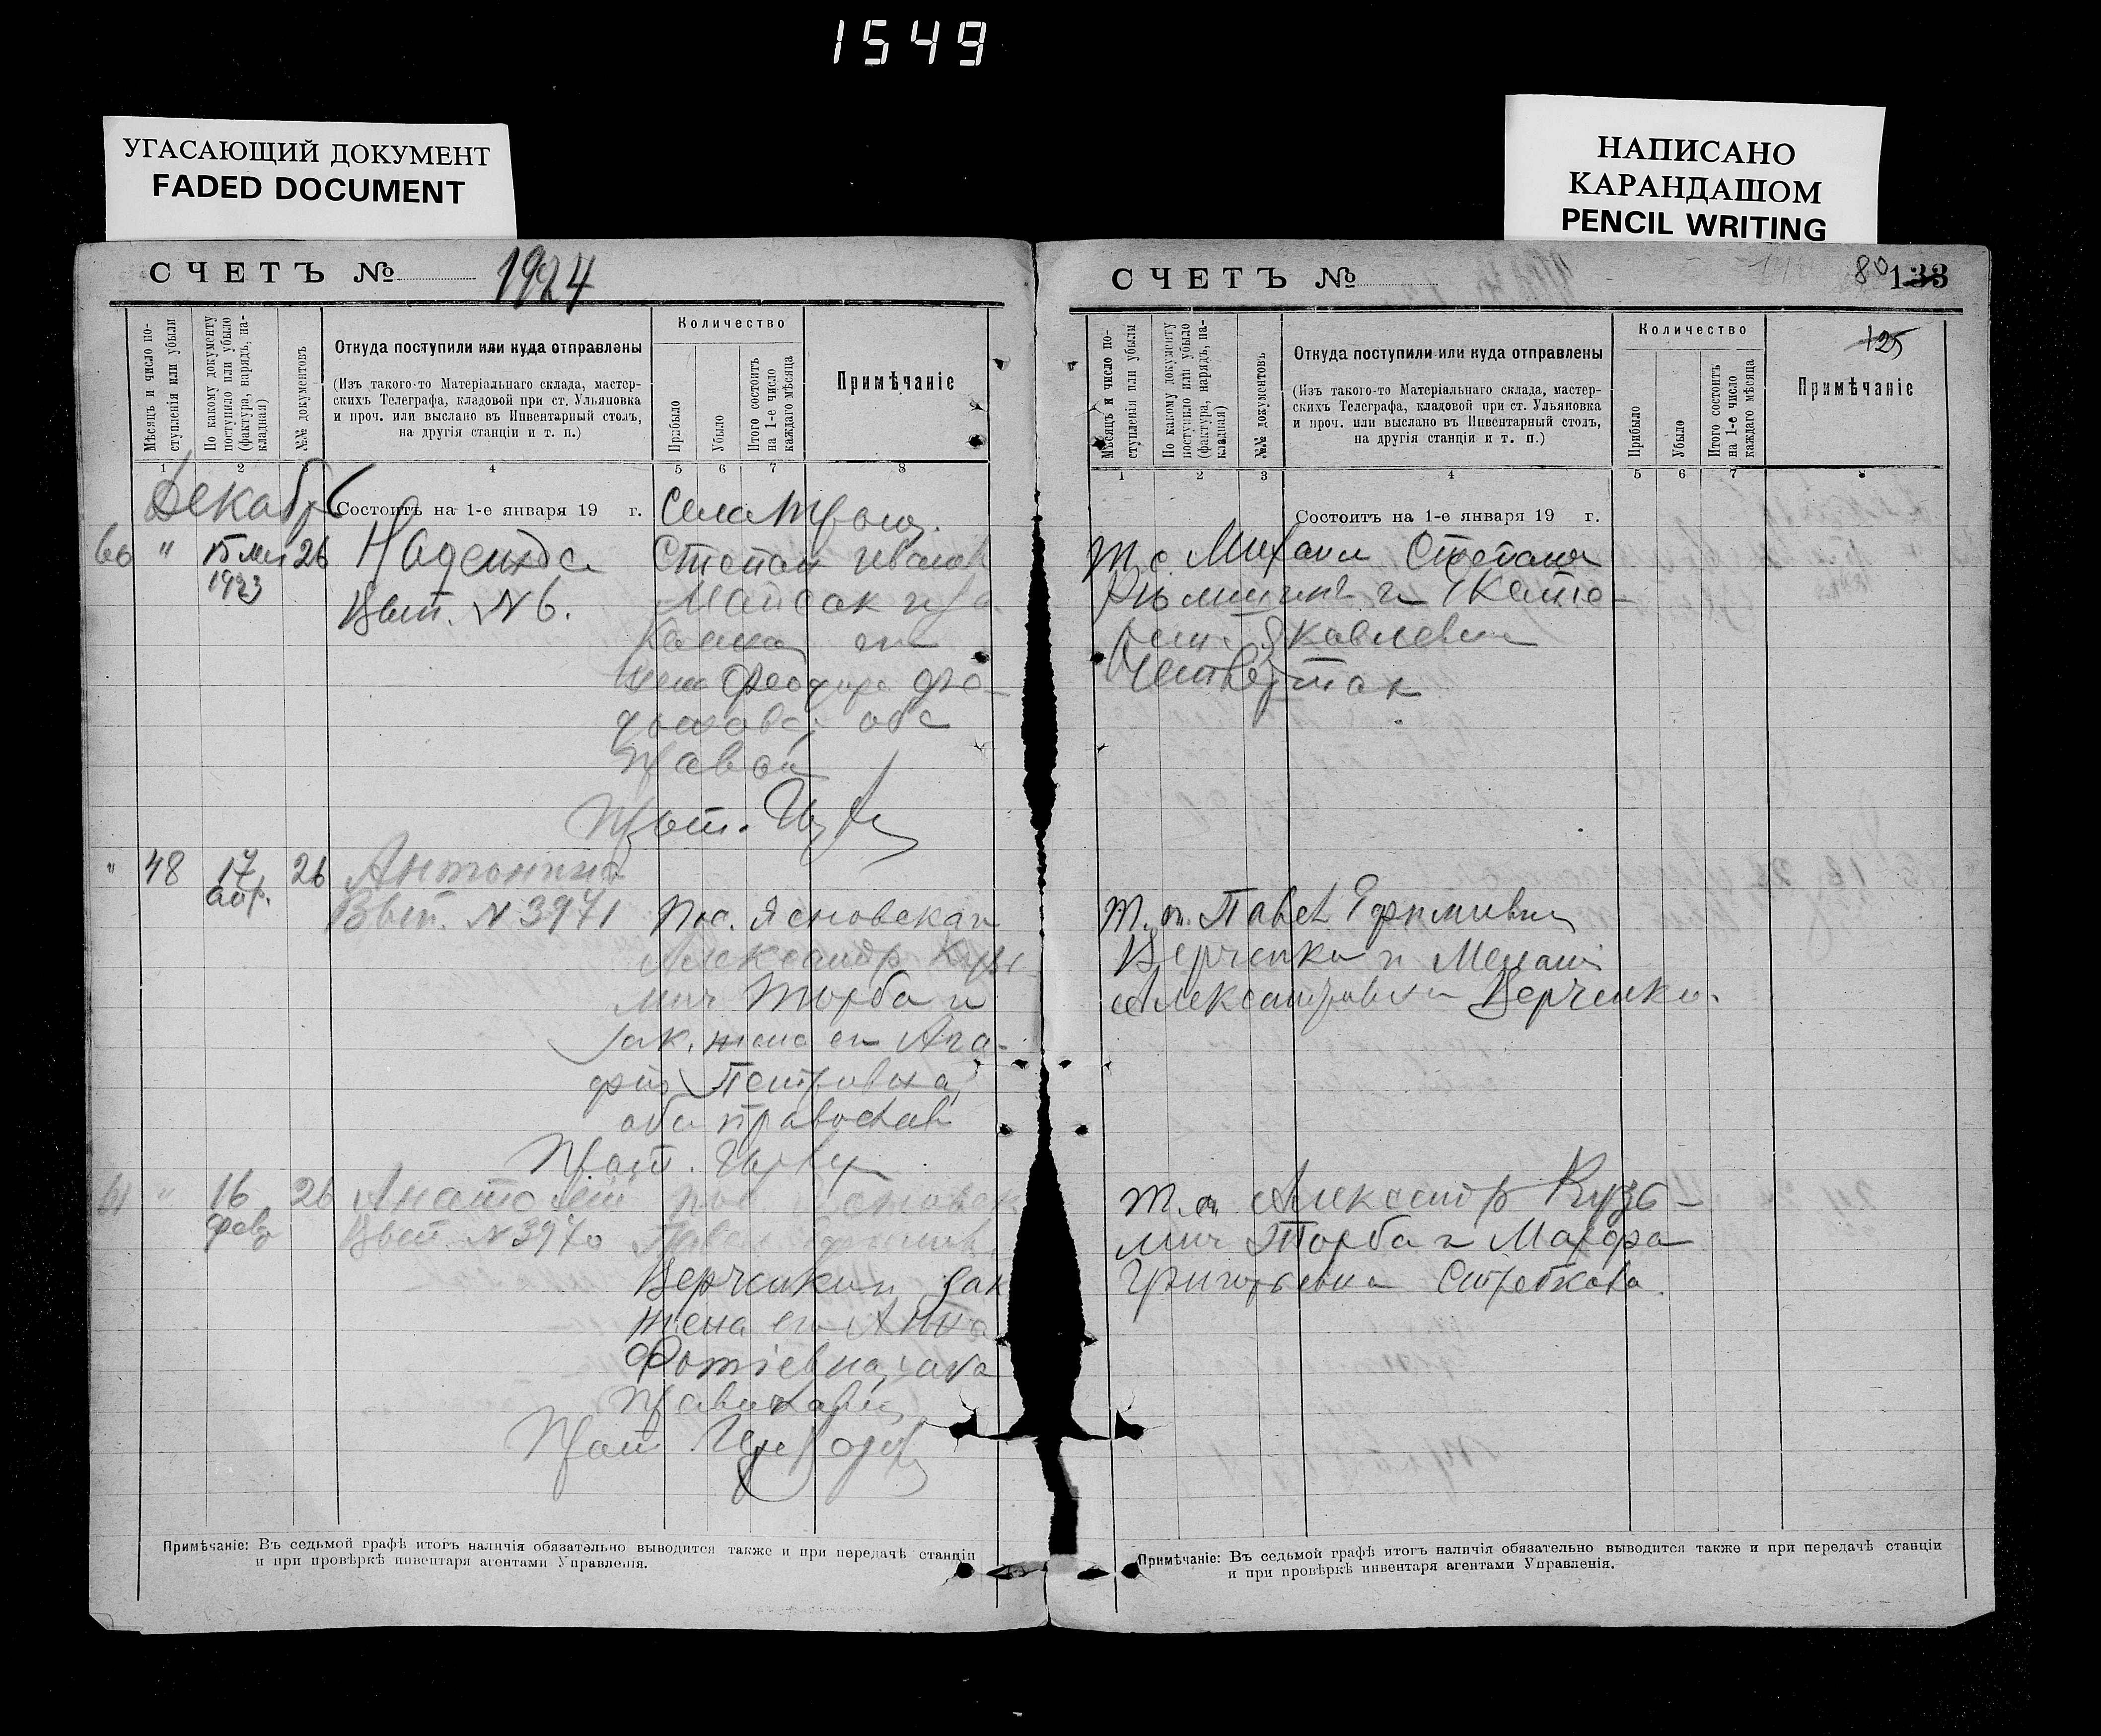 1549
УГАСАЮЩИЙ ДОКУМЕНТ
FADED DOCUMENT
НАПИСАНО
КАРАНДАШОМ
PENCIL WRITING
СЧЕТЪ №
1924
Мѣсяцъ и число по-
ступленія или убыли
По какому документу
поступило или убыло
(фактура, нарядъ, на-
кладная)
№№ документовъ
Откуда поступили или куда отправлены
(Изъ такого-то Матеріальнаго склада, мастер-
скихъ Телеграфа, кладовой при ст. Ульяновка
и проч. или выслано въ Инвентарный столъ,
на другія станціи и т. п.)
Количество
Прибыло
Убыло
Итого состоитъ
на 1-е число
каждаго мѣсяца
Примѣчаніе
1 2 3 4 5 6 7 8
Декабрь
Состоитъ на 1-е января 19 г.
Села
60 " 15 26 Надежда Степан Иванов
1923
№ 6.
Майбак
его
жена Феодора
оба
Прав
" 48 17 26 Антонина
апр.
№ 3971 Пос. Ясновская
Александр Кузь-
мич Торба и
зак. жена ег Ага-
фия Петровна
оба православ
61 " 16 26 Анатолий пос. Ясновск
фев
№ 3970 Павел
Верченко и зак
жена ег Анна
Фотіевна, оба
Примѣчаніе: Въ седьмой графѣ итогъ наличія обязательно выводится также и при передачѣ станціи
и при провѣркѣ инвентаря агентами Управленія.
СЧЕТЪ №
80 133
125
Мѣсяцъ и число по-
ступленія или убыли
По какому документу
поступило или убыло
(фактура, нарядъ, на-
кладная)
№№ документовъ
Откуда поступили или куда отправлены
(Изъ такого-то Матеріальнаго склада, мастер-
скихъ Телеграфа, кладовой при ст. Ульяновка
и проч. или выслано въ Инвентарный столъ,
на другія станціи и т. п.)
Количество
Прибыло
Убыло
Итого состоитъ
на 1-е число
каждаго мѣсяца
Примѣчаніе
1 2 3 4 5 6 7 8
Состоитъ на 1-е января 19 г.
Т. с. Михаил Степанов
и Кате-
Яковлевна
Четвертак
Т. п. Павел Ефимович
Верченко и Мелания
Александровна Верченко.
Т. п. Александр Кузь-
мич Торба и Марфа
Григорьевна Стребкова.
Примѣчаніе: Въ седьмой графѣ итогъ наличія обязательно выводится также и при передачѣ станціи
и при провѣркѣ инвентаря агентами Управленія.